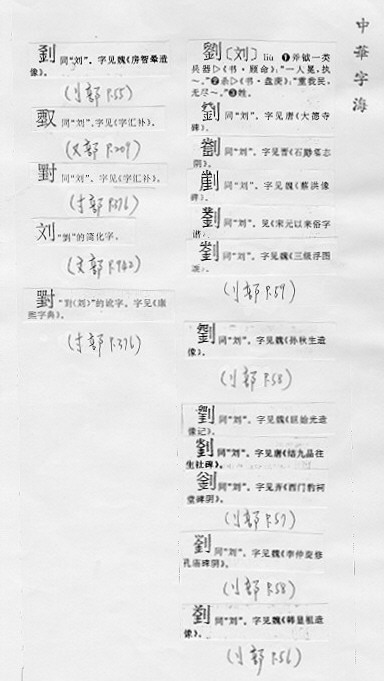 中華字海
劉〔刘〕 liú ❶斧钺一类
兵器▷《书·顾命》:“一人冕,执
～。”❷杀▷《书·盘庚》:“重我民,
无尽～。”❸姓。
同“刘”。字见唐《大德寺
碑》。
同“刘”。字见晋《石尠墓志
阴》。
同“刘”。字见魏《蔡洪像
碑》。
同“刘”。见《宋元以来俗字
谱》。
同“刘”。字见魏《三级浮图
颂》。
(刂部 P.59)
同“刘”。字见魏《孙秋生造
像》。
(刂部 P.58)
同“刘”。字见魏《巨始光造
像记》。
同“刘”。字见唐《结九品往
生社碑》。
同“刘”。字见齐《西门豹祠
堂碑阴》。
(刂部 P.57)
同“刘”。字见魏《李仲璇修
孔庙碑阴》。
(刂部 P.58)
同“刘”。字见魏《韩显祖造
像》。
(刂部 P.56)
同“刘”。字见魏《房智晕造
像》。
(刂部 P.55)
同“刘”。字见《字汇补》。
(又部 P.209)
同“刘”。字见《字汇补》。
(寸部 P.376)
刘 “劉”的简化字。
(文部 P.942)
“對(刘)”的讹字。字见《康
熙字典》。
(寸部 P.376)